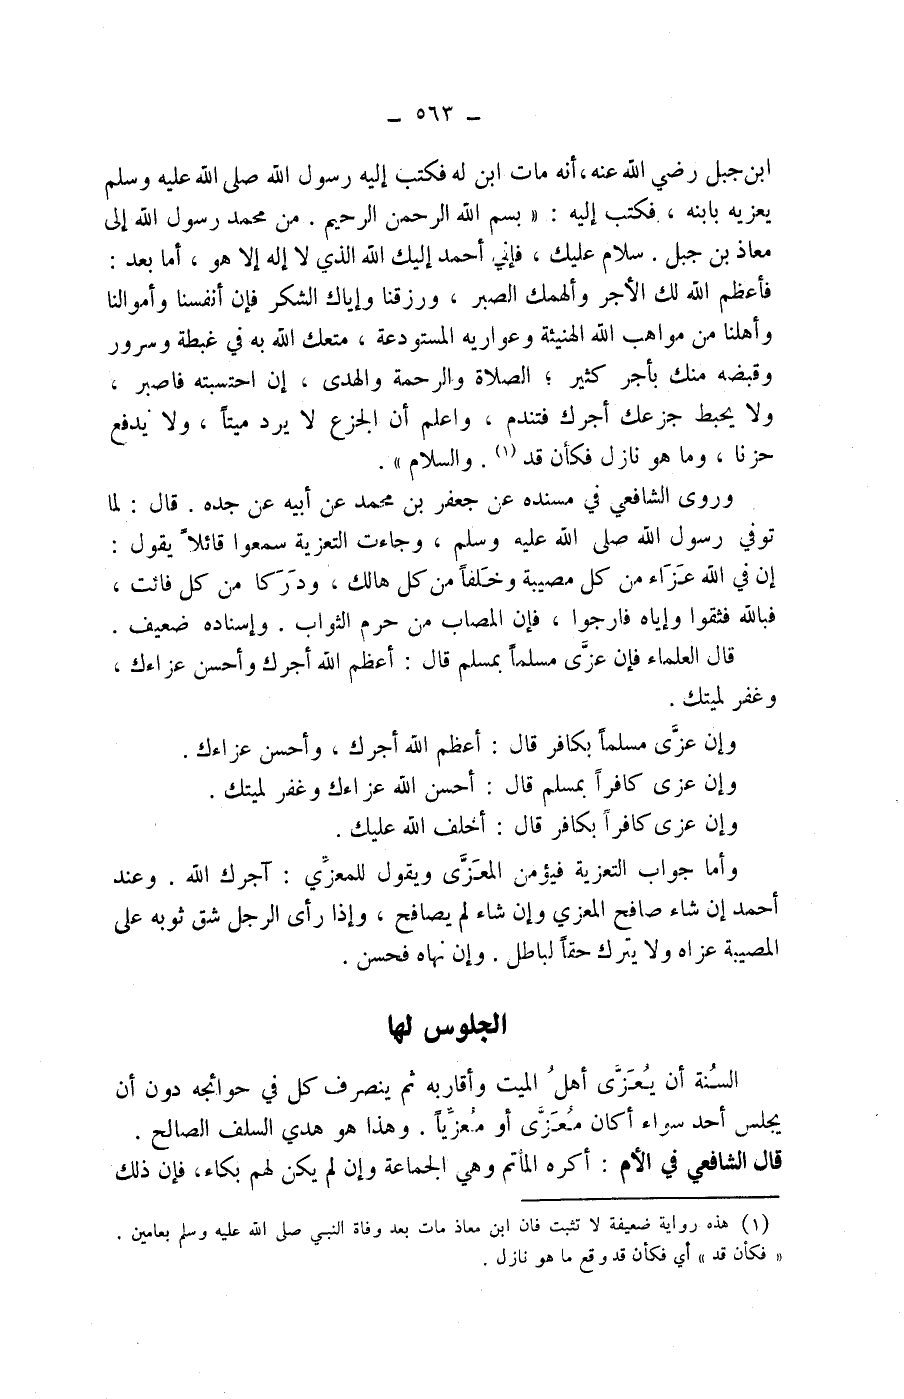 ـ ٥٦٣ ـ
ابن جبل رضي الله عنه، أنه مات ابن له فكتب إليه رسول الله صلى الله عليه وسلم
يعزيه بابنه ، فكتب إليه : « بسم الله الرحمن الرحيم . من محمد رسول الله إلى
معاذ بن جبل . سلام عليك ، فإني أحمد إليك الله الذي لا إله إلا هو ، أما بعد :
فأعظم الله لك الأجر وألهمك الصبر ، ورزقنا وإياك الشكر فإن أنفسنا وأموالنا
وأهلنا من مواهب الله الهنيئة وعواريه المستودعة ، متعك الله به في غبطة وسرور
وقبضه منك بأجر كثير ؛ الصلاة والرحمة والهدى ، إن احتسبته فاصبر ،
ولا يحبط جزعك أجرك فتندم ، واعلم أن الجزع لا يرد ميتاً ، ولا يدفع
حزنا ، وما هو نازل فكأن قد (١) . والسلام » .
وروى الشافعي في مسنده عن جعفر بن محمد عن أبيه عن جده . قال : لما
توفي رسول الله صلى الله عليه وسلم ، وجاءت التعزية سمعوا قائلاً يقول :
إن في الله عَزَاء من كل مصيبة وخَلفاً من كل هالك ، ودَرَكا من كل فائت ،
فبالله فثقوا وإياه فارجوا ، فإن المصاب من حرم الثواب . وإسناده ضعيف .
قال العلماء فإن عزَّى مسلماً بمسلم قال : أعظم الله أجرك وأحسن عزاءك ،
وغفر لميتك .
وإن عزَّى مسلماً بكافر قال : أعظم الله أجرك ، وأحسن عزاءك .
وإن عزى كافراً بمسلم قال : أحسن الله عزاءك وغفر لميتك .
وإن عزى كافراً بكافر قال : أخلف الله عليك .
وأما جواب التعزية فيؤمن المعَزَّى ويقول للمعزِّي : آجرك الله . وعند
أحمد إن شاء صافح المعزي وإن شاء لم يصافح ، وإذا رأى الرجل شق ثوبه على
المصيبة عزاه ولا يترك حقاً لباطل . وإن نهاه فحسن .
الجلوس لها
السُنة أن يُعَزَّى أهلُ الميت وأقاربه ثم ينصرف كل في حوائجه دون أن
يجلس أحد سواء أكان مُعَزَّى أو مُعزِّياً . وهذا هو هدي السلف الصالح .
قال الشافعي في الأم : أكره المأتم وهي الجماعة وإن لم يكن لهم بكاء، فإن ذلك
(١) هذه رواية ضعيفة لا تثبت فان ابن معاذ مات بعد وفاة النبي صلى الله عليه وسلم بعامين .
« فكأن قد » أي فكأن قد وقع ما هو نازل .